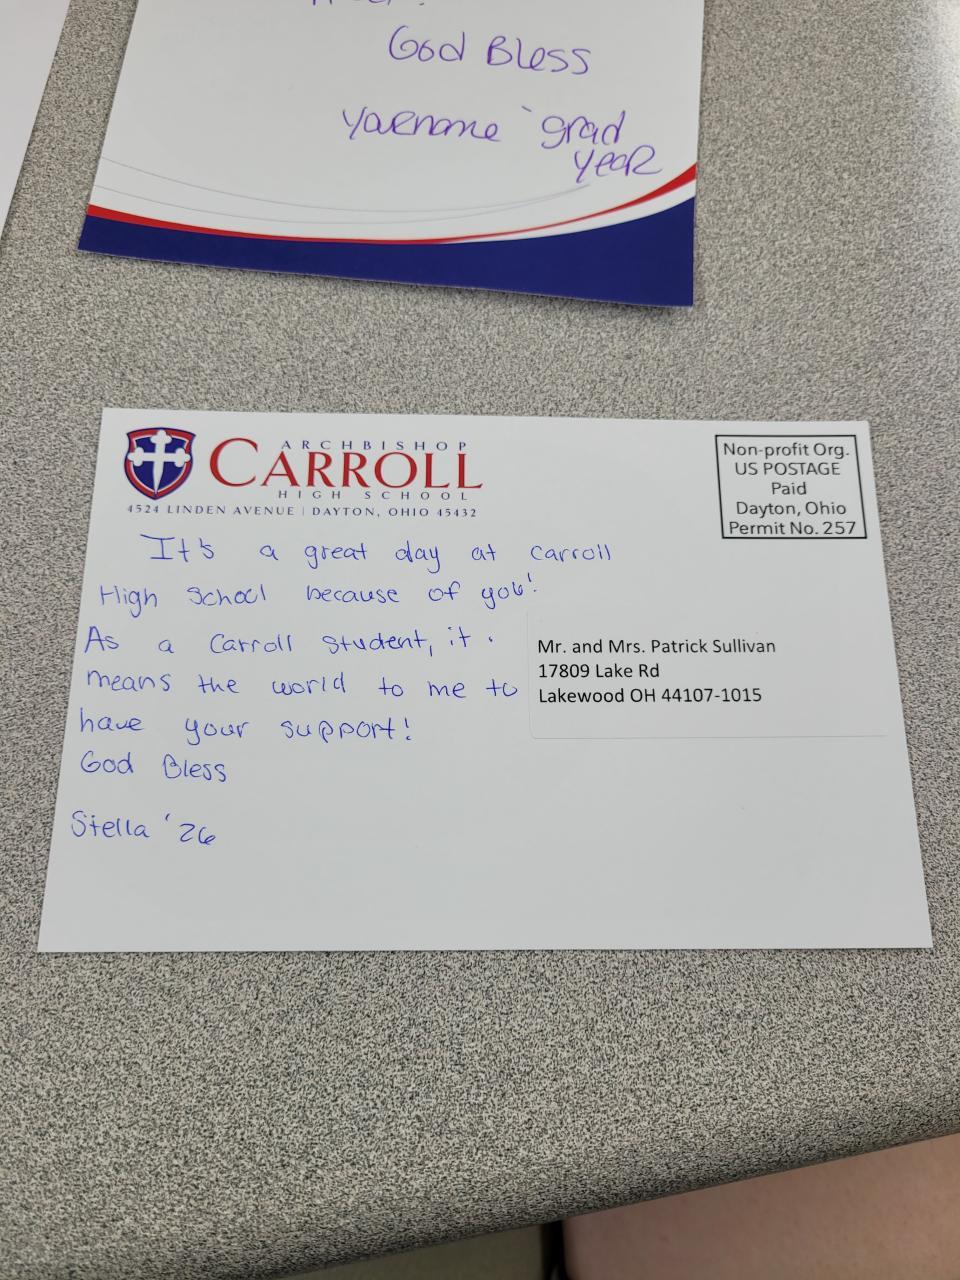 God Bless
Yourname 'grad
year
ARCHBISHOP
CARROLL
HIGH SCHOOL
4524 LINDEN AVENUE | DAYTON, OHIO 45432
Non-profit Org.
US POSTAGE
Paid
Dayton, Ohio
Permit No. 257
It's a great day at Carroll
High School because of you!
As a Carroll student, it
means the world to me to
have your support!
God Bless
Stella '26
Mr. and Mrs. Patrick Sullivan
17809 Lake Rd
Lakewood OH 44107-1015